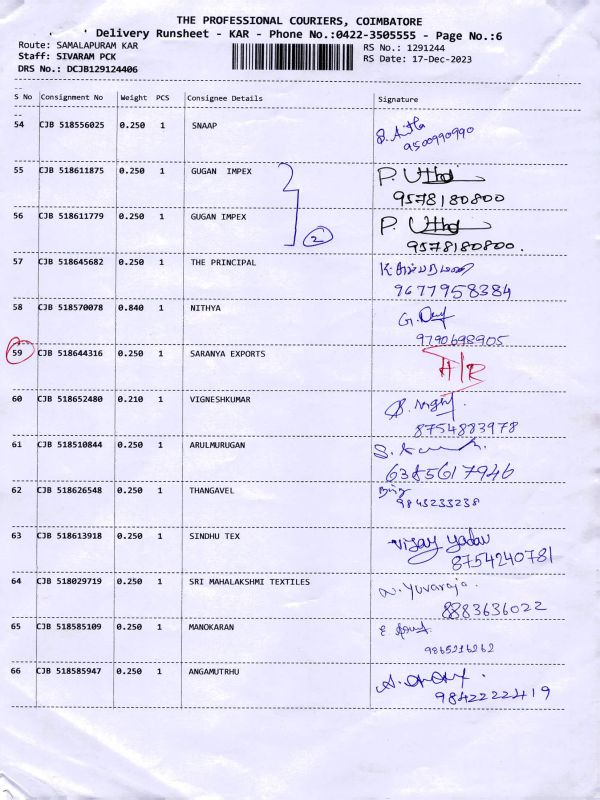 THE PROFESSIONAL COURIERS, COIMBATORE
Delivery Runsheet - KAR - Phone No.:0422-3505555 - Page No.:6
Route: SAMALAPURAM KAR RS No.: 1291244
Staff: SIVARAM PCK RS Date: 17-Dec-2023
DRS No.: DCJB129124406
S No Consignment No Weight PCS Consignee Details Signature
54 CJB 518556025 0.250 1 SNAAP
9500990990
55 CJB 518611875 0.250 1 GUGAN IMPEX P.
9578180800
56 CJB 518611779 0.250 1 GUGAN IMPEX P.
2 9578180800.
57 CJB 518645682 0.250 1 THE PRINCIPAL
9677958384
58 CJB 518570078 0.840 1 NITHYA
9790698905
59 CJB 518644316 0.250 1 SARANYA EXPORTS
60 CJB 518652480 0.210 1 VIGNESHKUMAR
8754883978
61 CJB 518510844 0.250 1 ARULMURUGAN
6385617946
62 CJB 518626548 0.250 1 THANGAVEL
9843233238
63 CJB 518613918 0.250 1 SINDHU TEX Vijay Yadav
8754240781
64 CJB 518029719 0.250 1 SRI MAHALAKSHMI TEXTILES N. Yuvaraja.
8883636022
65 CJB 518585109 0.250 1 MANOKARAN
9865216262
66 CJB 518585947 0.250 1 ANGAMUTRHU
9842222419